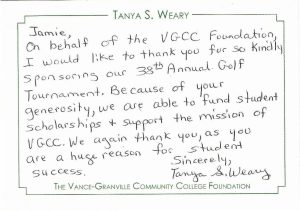 TANYA S. WEARY
Jamie,
On behalf of the VGCC Foundation,
I would like to thank you for so kindly
sponsoring our 38th Annual Golf
Tournament. Because of your
generosity, we are able to fund student
scholarships + support the mission of
VGCC. We again thank you, as you
are a huge reason for student
success.
Sincerely,
Tanya S. Weary
THE VANCE-GRANVILLE COMMUNITY COLLEGE FOUNDATION